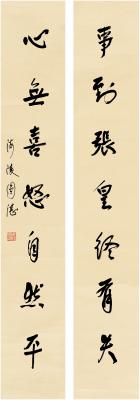 事到張皇終有失
心無喜怒自然平